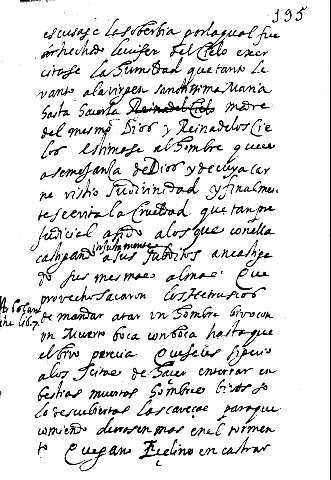 195
escusase la soberbia por la qual fue
hechado luçifer del Cielo exer
citese la humildad que tanto le
vanto a la virgen santissima Maria
hasta hacerla Reina del Cielo madre
del mesmo Dios y Reina de los Cie
los estimese al hombre que es
a semejanza de Dios y de cuya car
ne vistio su divinidad y finalmen
te se evita la Crueldad que tan per
judicial a sido a los que con ella
castigando injustamente a sus subditos an castiga
do sus mesmas almas Que
provecho sacaron los Hetruscos
de mandar atar un hombre bivo con
un Muerto boca con boca hasta que
el bivo perecia Que se les siguio
a los de hacer enterrar en
bestias muertas hombres bivos so
lo descubiertas las cavezas para que
comiendo durasen mas en el tormen
to Que gano Eçelino en castrar